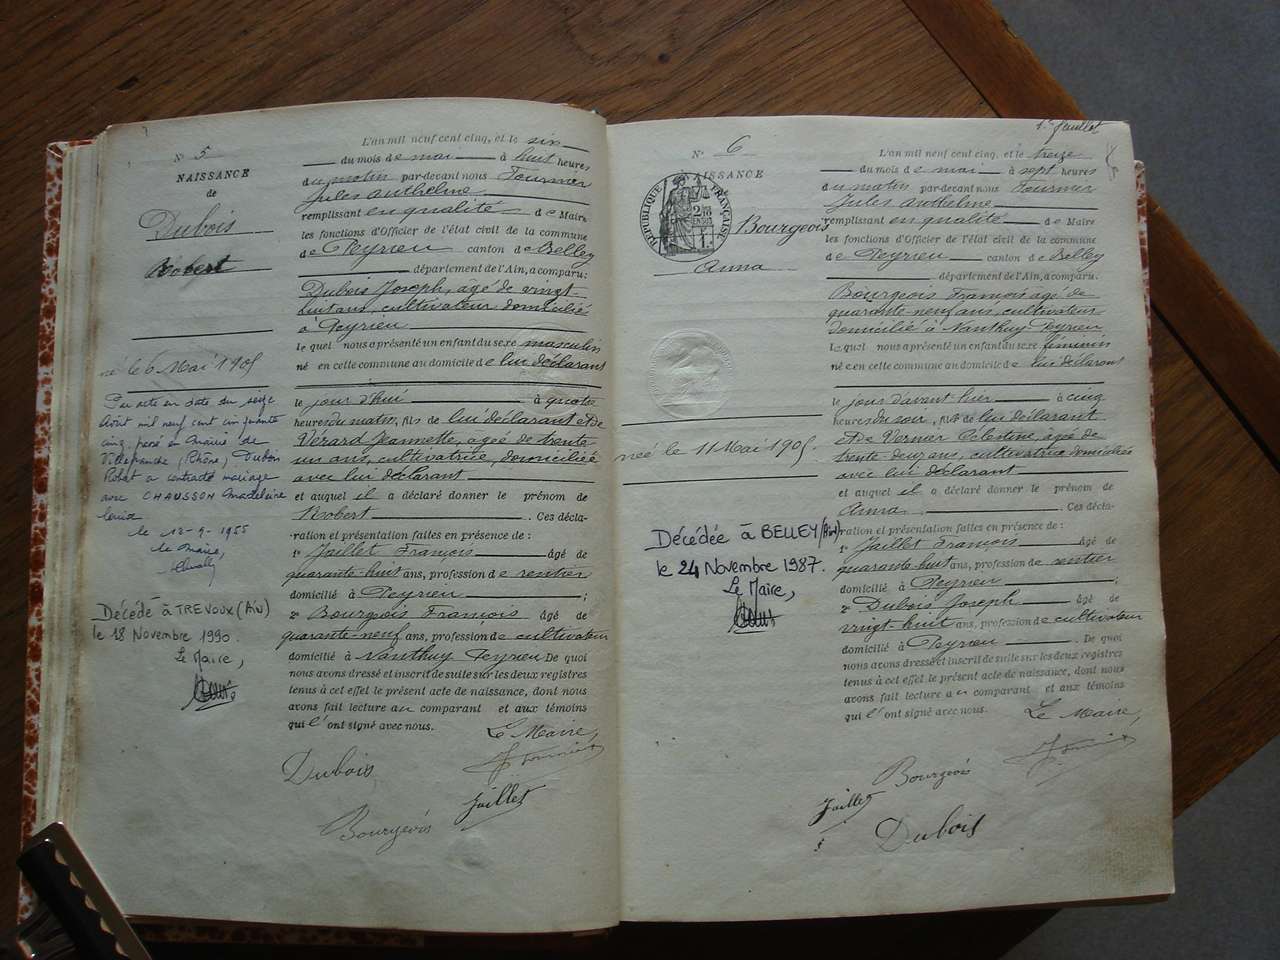 N° 5
NAISSANCE
de
Dubois
Robert
né le 6 Mai 1905
Par acte en date du seize
Août mil neuf cent cinquante
cinq, passé en Mairie de
Villefranche (Rhône) Dubois
Robert a contracté mariage
avec CHAUSSON Madeleine
Louise
le 12-9-1955
le Maire,
Décédé à TREVOUX (Ain)
le 18 Novembre 1990.
Le Maire,
L'an mil neuf cent cinq, et le six
du mois de mai à huit heures
du matin par-devant nous Fournier
Jules Anthelme
remplissant en qualité de Maire
les fonctions d'Officier de l'état civil de la commune
de Peyrieu canton de Belley
département de l'Ain, a comparu:
Dubois Joseph, agé de vingt
huit ans, cultivateur domicilié
à Peyrieu
lequel nous a présenté un enfant du sexe masculin
né en cette commune au domicile de lui déclarant
le jour d'hui à quatre
heures du matin, fils de lui déclarant et de
Vérard Jeannette, agée de trente
un ans, cultivatrice, domiciliée
avec lui déclarant
et auquel il a déclaré donner le prénom de
Robert. Ces décla-
ration et présentation faites en présence de :
1° Jaillet François âgé de
quarante-huit ans, profession de rentier
domicilié à Peyrieu ;
2° Bourgeois François âgé de
quarante-neuf ans, profession de cultivateur
domicilié à Nanthuy Peyrieu De quoi
nous avons dressé et inscrit de suite sur les deux registres
tenus à cet effet le présent acte de naissance, dont nous
avons fait lecture au comparant et aux témoins
qui l'ont signé avec nous.
Le Maire,
Dubois
J. Fournier
Jaillet
Bourgeois
1er Juillet
N° 6
NAISSANCE
RÉPUBLIQUE FRANÇAISE
2/10
EN SUS
1F
Bourgeois
Anna
née le 11 Mai 1905.
Décédée à BELLEY (Ain)
le 24 Novembre 1987.
Le Maire,
L'an mil neuf cent cinq, et le treize
du mois de mai à sept heures
du matin par-devant nous Fournier
Jules Anthelme
remplissant en qualité de Maire
les fonctions d'Officier de l'état civil de la commune
de Peyrieu canton de Belley
département de l'Ain, a comparu:
Bourgeois François agé de
quarante-neuf ans, cultivateur
domicilié à Nanthuy Peyrieu
lequel nous a présenté un enfant du sexe féminin
née en cette commune au domicile de lui déclarant
le jour d'avant hier à cinq
heures du soir, fils de lui déclarant
et de Vernier Celestine, agée de
trente-deux ans, cultivatrice domiciliée
avec lui déclarant
et auquel il a déclaré donner le prénom de
Anna. Ces décla-
ration et présentation faites en présence de :
1° Jaillet François âgé de
quarante-huit ans, profession de rentier
domicilié à Peyrieu ;
2° Dubois Joseph âgé de
vingt-huit ans, profession de cultivateur
domicilié à Peyrieu. De quoi
nous avons dressé et inscrit de suite sur les deux registres
tenus à cet effet le présent acte de naissance, dont nous
avons fait lecture au comparant et aux témoins
qui l'ont signé avec nous.
Le Maire,
J. Fournier
Bourgeois
Jaillet
Dubois